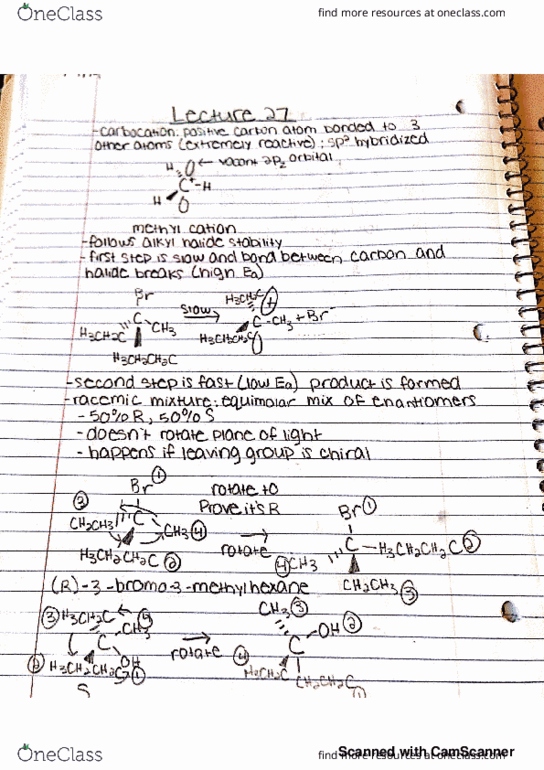 OneClass
find more resources at oneclass.com
Lecture 27
-carbocation: positive carbon atom bonded to 3
other atoms (extremely reactive); sp² hybridized
H ← vacant 2pz orbital
C+-H
H
methyl cation
-follows alkyl halide stability
-first step is slow and bond between carbon and
halide breaks (high Ea)
Br
H3CH2C C CH3 slow H3CH2C + C-CH3 + Br-
H3CH2CH2C
-second step is fast (low Ea) product is formed
-racemic mixture: equimolar mix of enantiomers
-50% R, 50% S
-doesn't rotate plane of light
-happens if leaving group is chiral
Br ① rotate to
Prove it's R
Br ①
③ CH2CH3 C CH3 ④
H3CH2CH2C ② rotate ④ CH3 C -H3CH2CH2C ②
CH2CH3 ③
(R)-3-bromo-3-methylhexane
③ H3CH2C C CH3
CH3 ③
C -OH ②
② H3CH2CH2C OH ① rotate ④
S
Scanned with CamScanner
OneClass
find more resources at oneclass.com